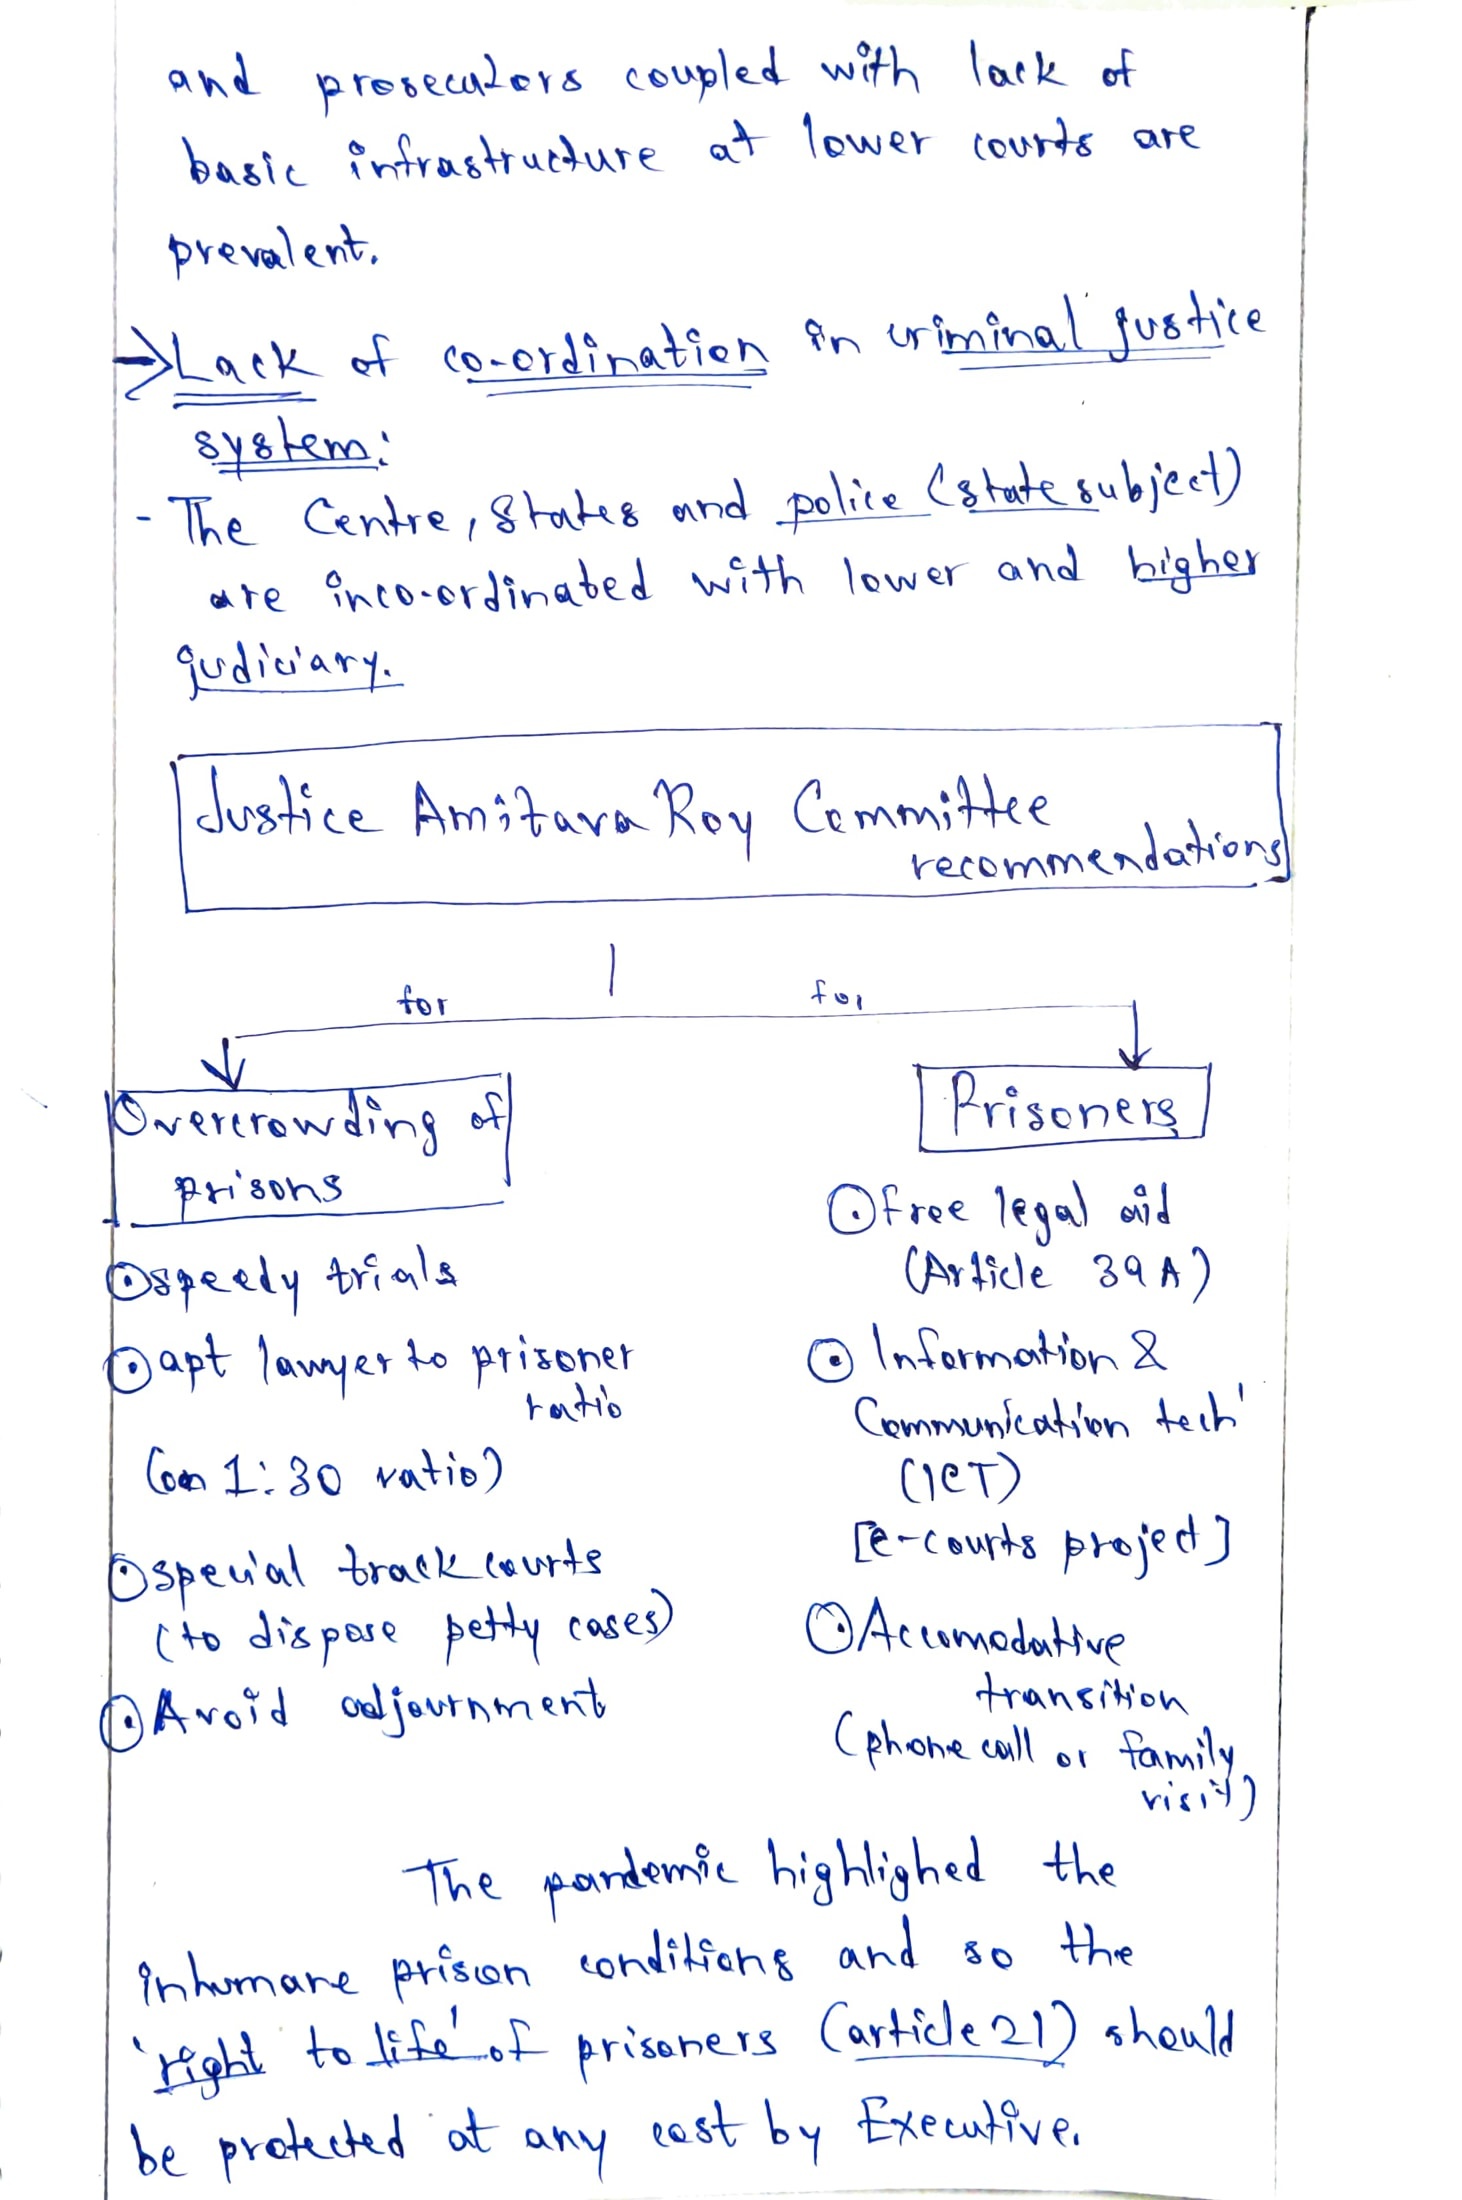 and prosecutors coupled with lack of
basic infrastructure at lower courts are
prevalent.
→ Lack of co-ordination in criminal justice
system:
- The Centre, States and police (state subject)
are inco-ordinated with lower and higher
judiciary.
Justice Amitava Roy Committee
recommendations
for for
Overcrowding of
prisons
⊙ speedy trials
⊙ apt lawyer to prisoner
ratio
(on 1:30 ratio)
⊙ special track courts
(to dispose petty cases)
⊙ Avoid adjournment
Prisoners
⊙ free legal aid
(Article 39A)
⊙ Information &
Communication tech'
(ICT)
[e-courts project]
⊙ Accomodative
transition
(phone call or family
visit)
The pandemic highlighed the
inhumane prison conditions and so the
'right to life' of prisoners (article 21) should
be protected at any cost by Executive.